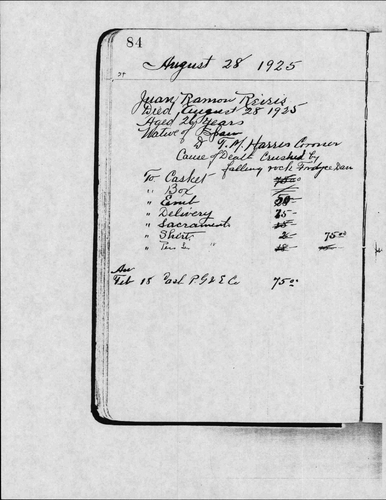 84
August 28 1925
Juan Ramon Reiris
Died August 28 1925
Aged 26 Years
Native of Spain
D T. M Harris Coroner
Cause of Death Crushed by
falling rock Fordyce Dam
To Casket 75.00
" Box
" Emb
" Delivery 25
" Sacrament
" Shirt 75.00
"
Feb 18 Cash P G & E Co 75.00